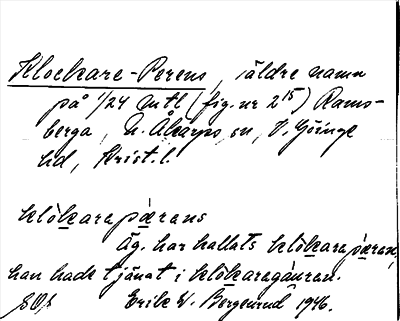 Klockare-Perens, äldre namn
på 1/24 mtl (fig. nr 2¹⁵) Rams-
berga, N. Åkarps sn, V. Göinge
hd, Krist. l.
klökarapærans
Äg. har kallats klökarapæran,
han hade tjänat i klökaragåuren.
Erik W. Bergenrud 1946.